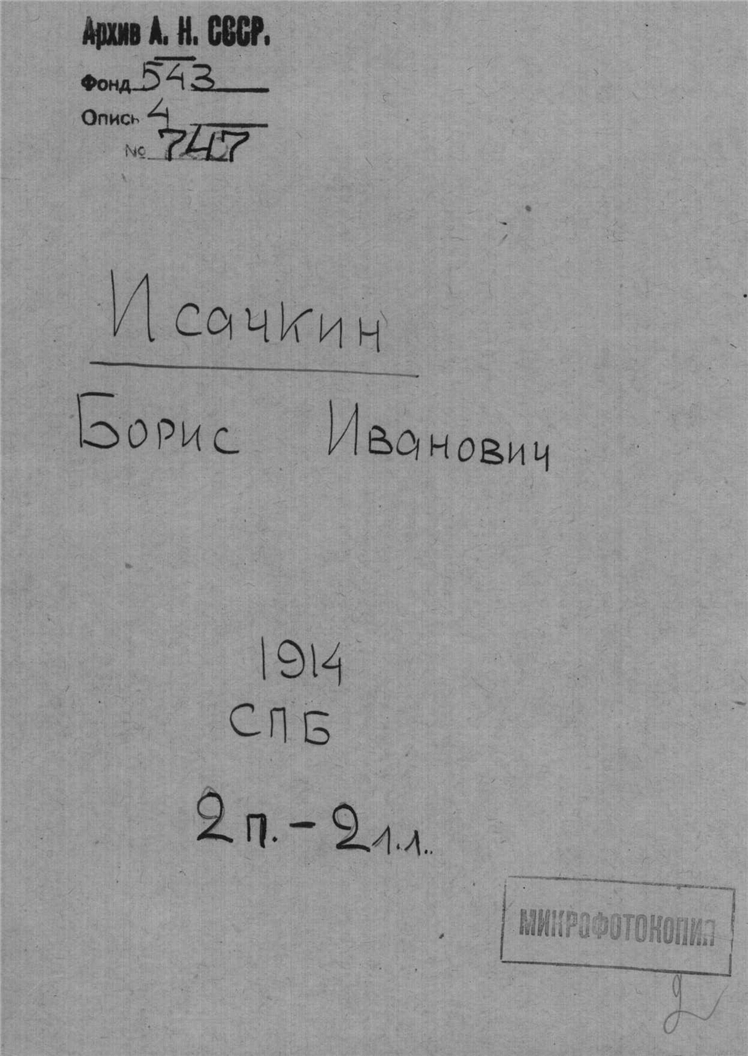 Архив А. Н. СССР.
Фонд 543
Опись 4
№ 747
Исачкин
Борис Иванович
1914
СПБ
2 п. – 2 л.л.
МИКРОФОТОКОПИЯ
2